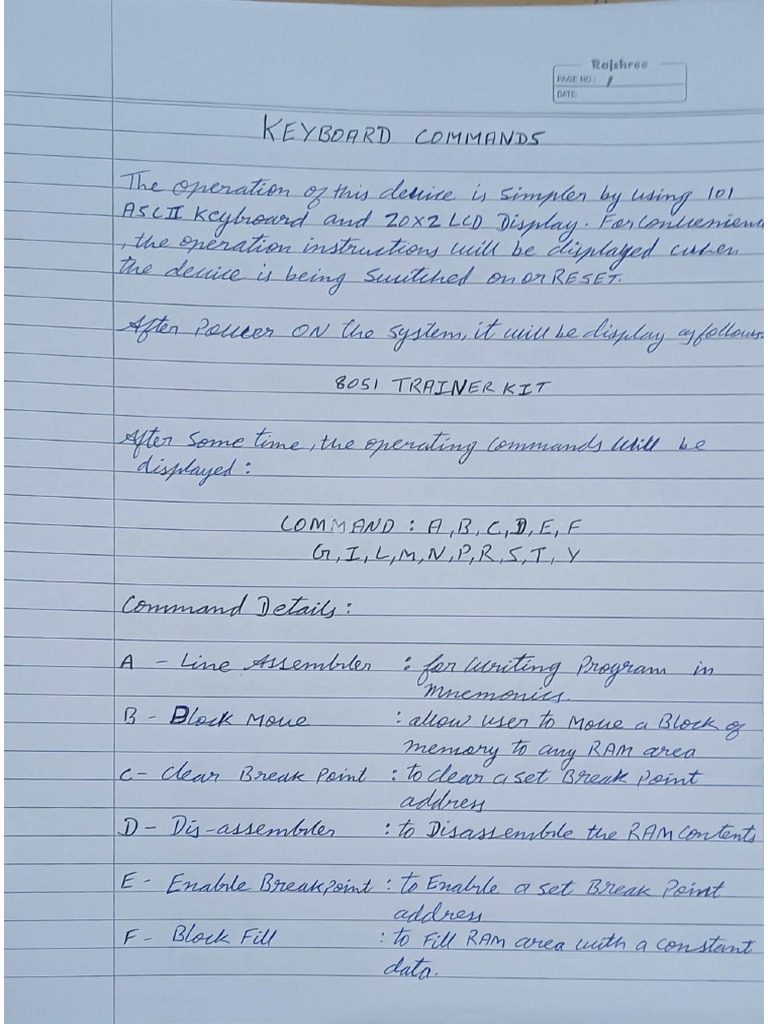 Rajshree
PAGE NO.: 1
DATE:
KEYBOARD COMMANDS
The operation of this device is simpler by using 101
ASCII Keyboard and 20x2 LCD Display. For convenienc
, the operation instructions will be displayed when
the device is being switched on or RESET.
After Power ON the system, it will be display as follows.
8051 TRAINER KIT
After some time, the operating commands will be
displayed :
COMMAND : A, B, C, D, E, F
G, I, L, M, N, P, R, S, T, Y
Command Details :
A - Line Assembler : for writing Program in
Mnemonics.
B - Block Move : allow user to Move a Block of
memory to any RAM area
C - Clear Break Point : to clear a set Break Point
address
D - Dis-assembler : to Disassemble the RAM contents
E - Enable Breakpoint : to Enable a set Break Point
address
F - Block Fill : to Fill RAM area with a constant
data.